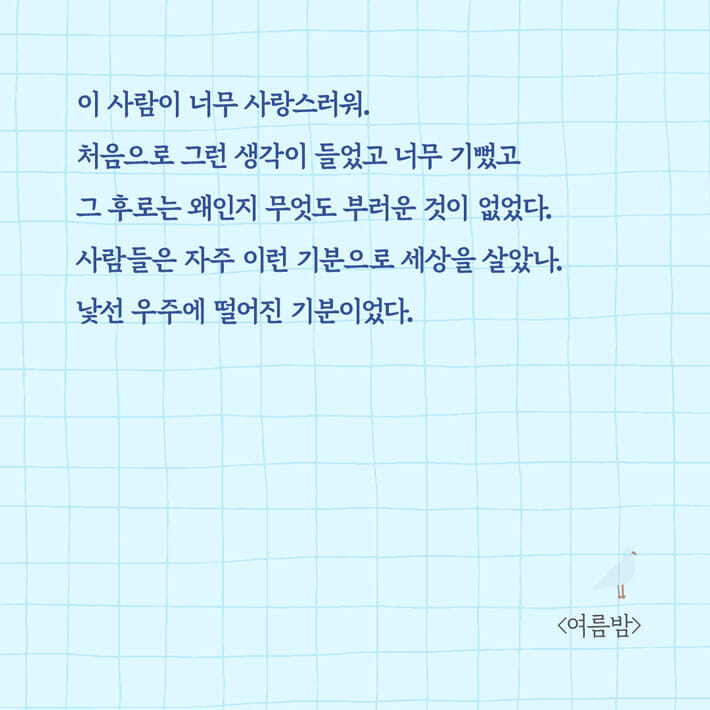 이 사람이 너무 사랑스러워.
처음으로 그런 생각이 들었고 너무 기뻤고
그 후로는 왜인지 무엇도 부러운 것이 없었다.
사람들은 자주 이런 기분으로 세상을 살았나.
낯선 우주에 떨어진 기분이었다.
<여름밤>